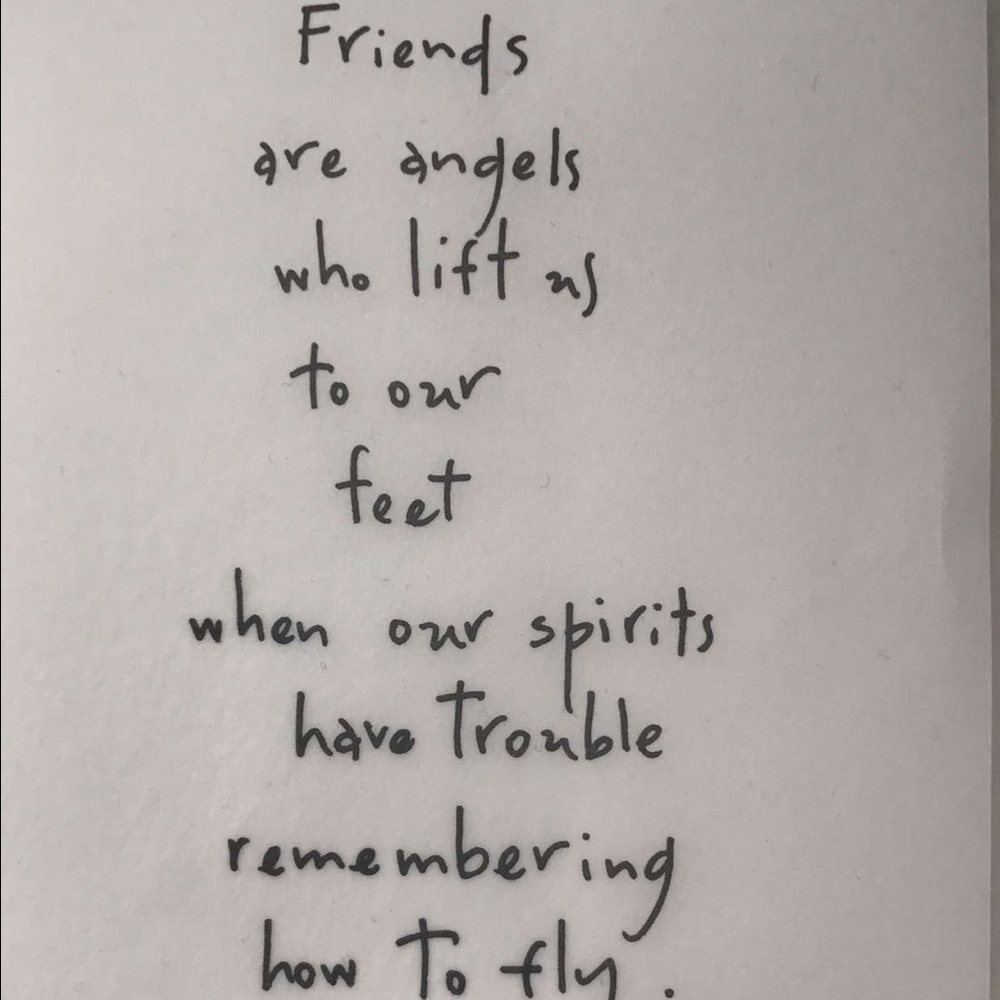 Friends
are angels
who lift us
to our
feet
when our spirits
have trouble
remembering
how to fly.